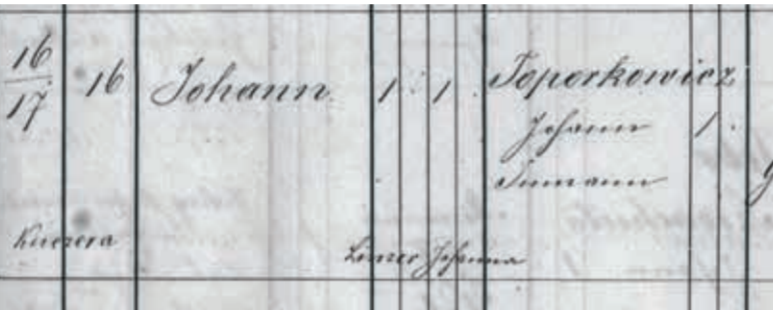 16
17
16 Johann 1 : 1 . Toporkowicz
Johann 1.
Inmann
Kuczera
Johanna